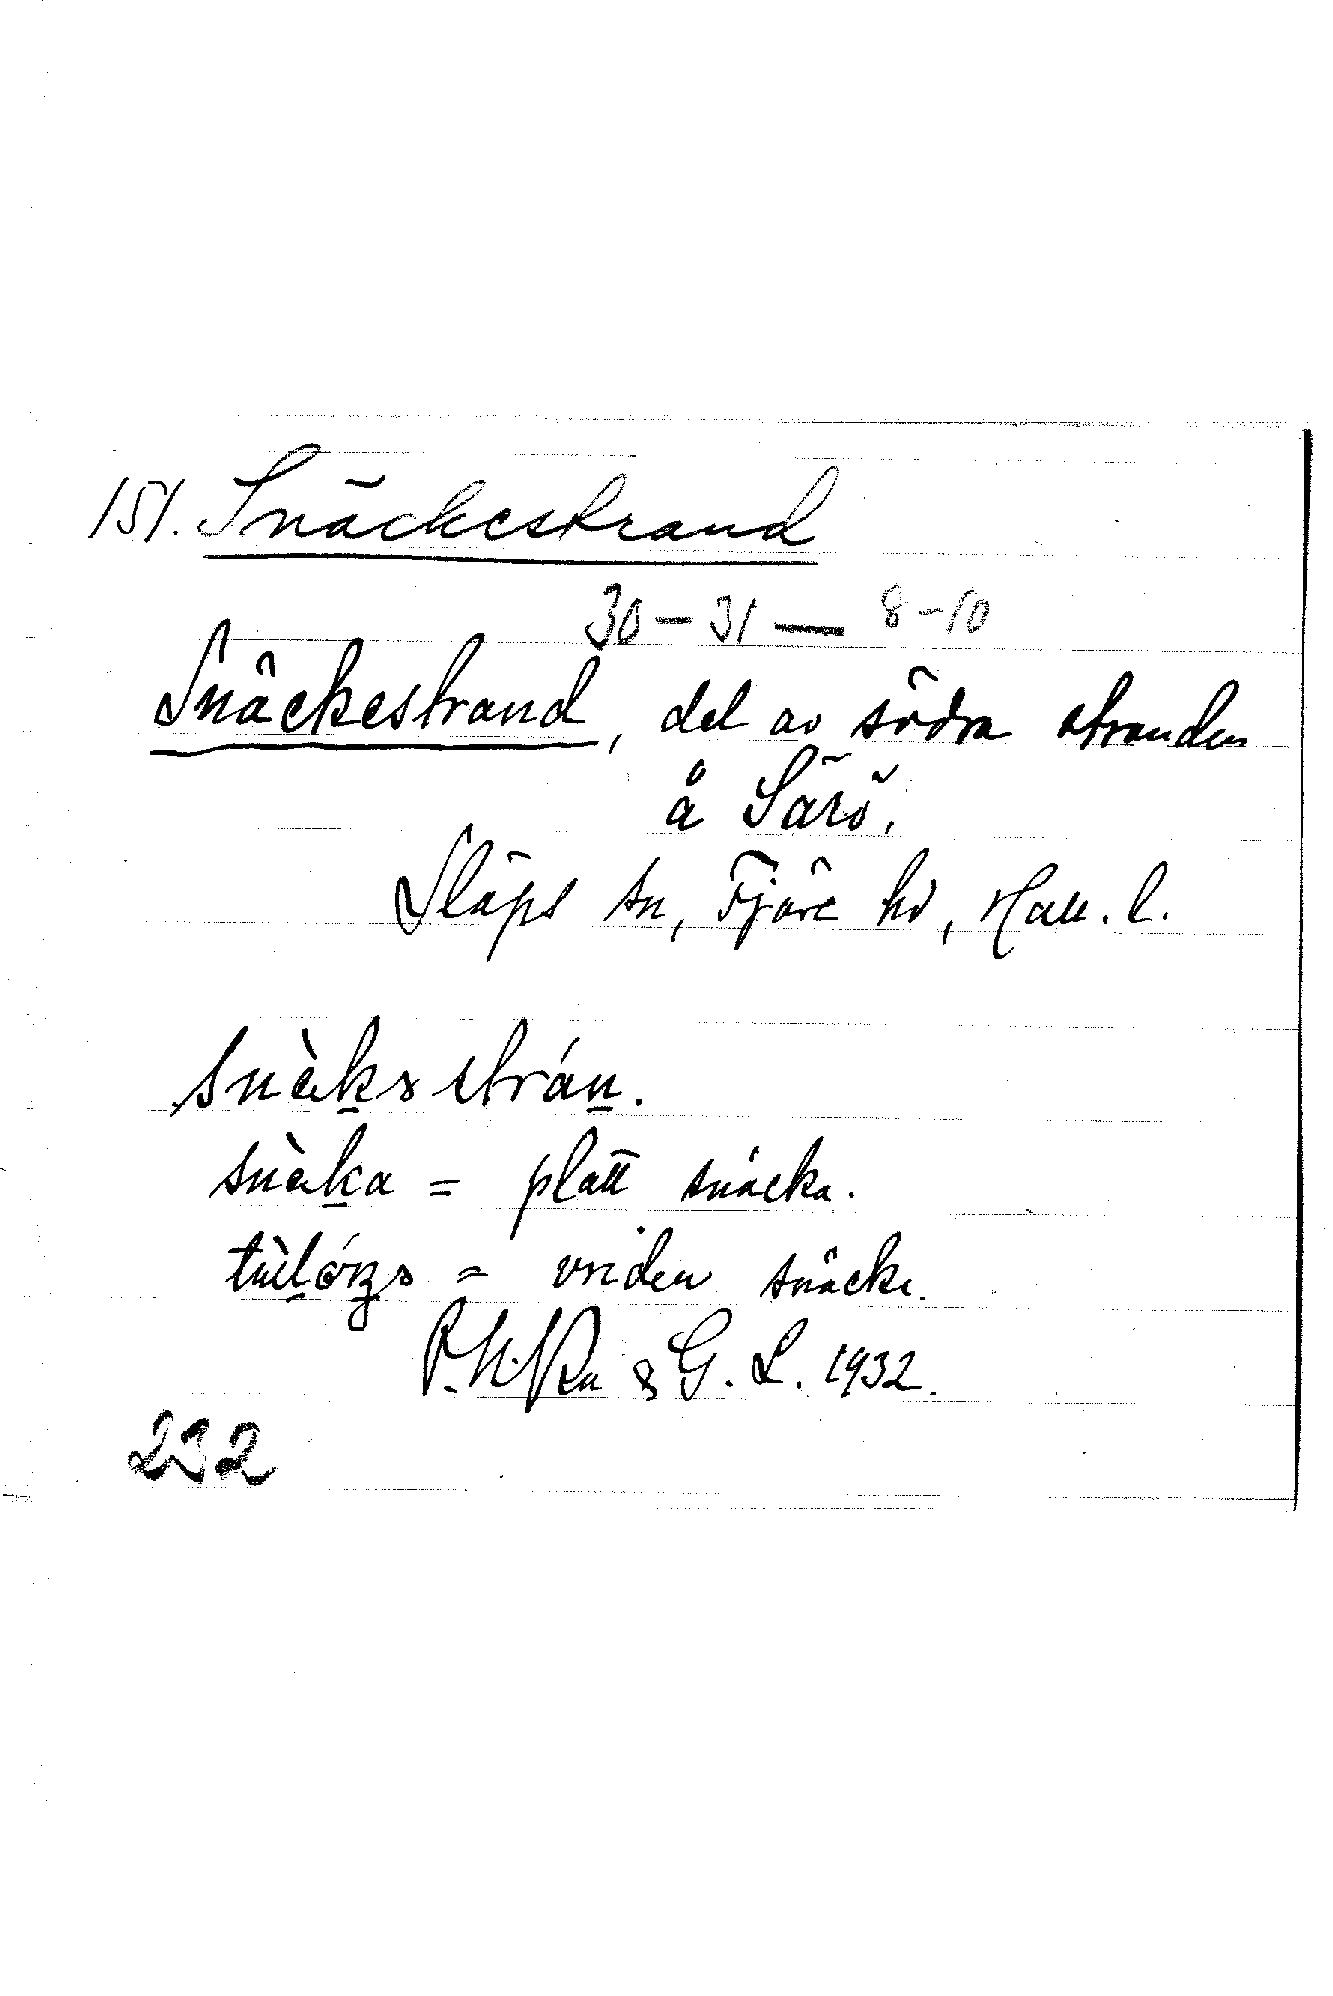 151. Snäckestrand
30 – 31 — 8 – 10
Snäckestrand, del av södra stranden
å Särö.
Släps sn, Fjäre hd, Hall. l.
snæ̀k̠ə strán̠.
snæ̀k̠a = platt snäcka.
= vriden snäcka.
& G. L. 1932.
232